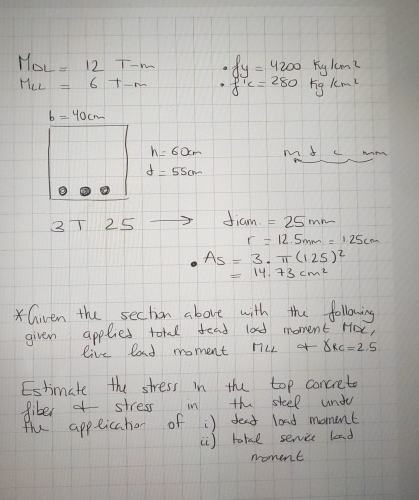 MDL = 12 T-m
MLL = 6 T-m
• fy = 4200 Kg/cm²
• f'c = 280 Kg/cm²
b = 40cm
h = 60cm
d = 55cm
m d c mm
3 T 25 → diam. = 25 mm
r = 12.5mm = 1.25cm
• As = 3 . π (1.25)²
= 14.73 cm²
*Given the section above with the following
given applied total dead load moment MDL,
live load moment MLL & γRC = 2.5
Estimate the stress in the top concrete
fiber & stress in the steel under
the application of i) dead load moment
ii) total service load
moment